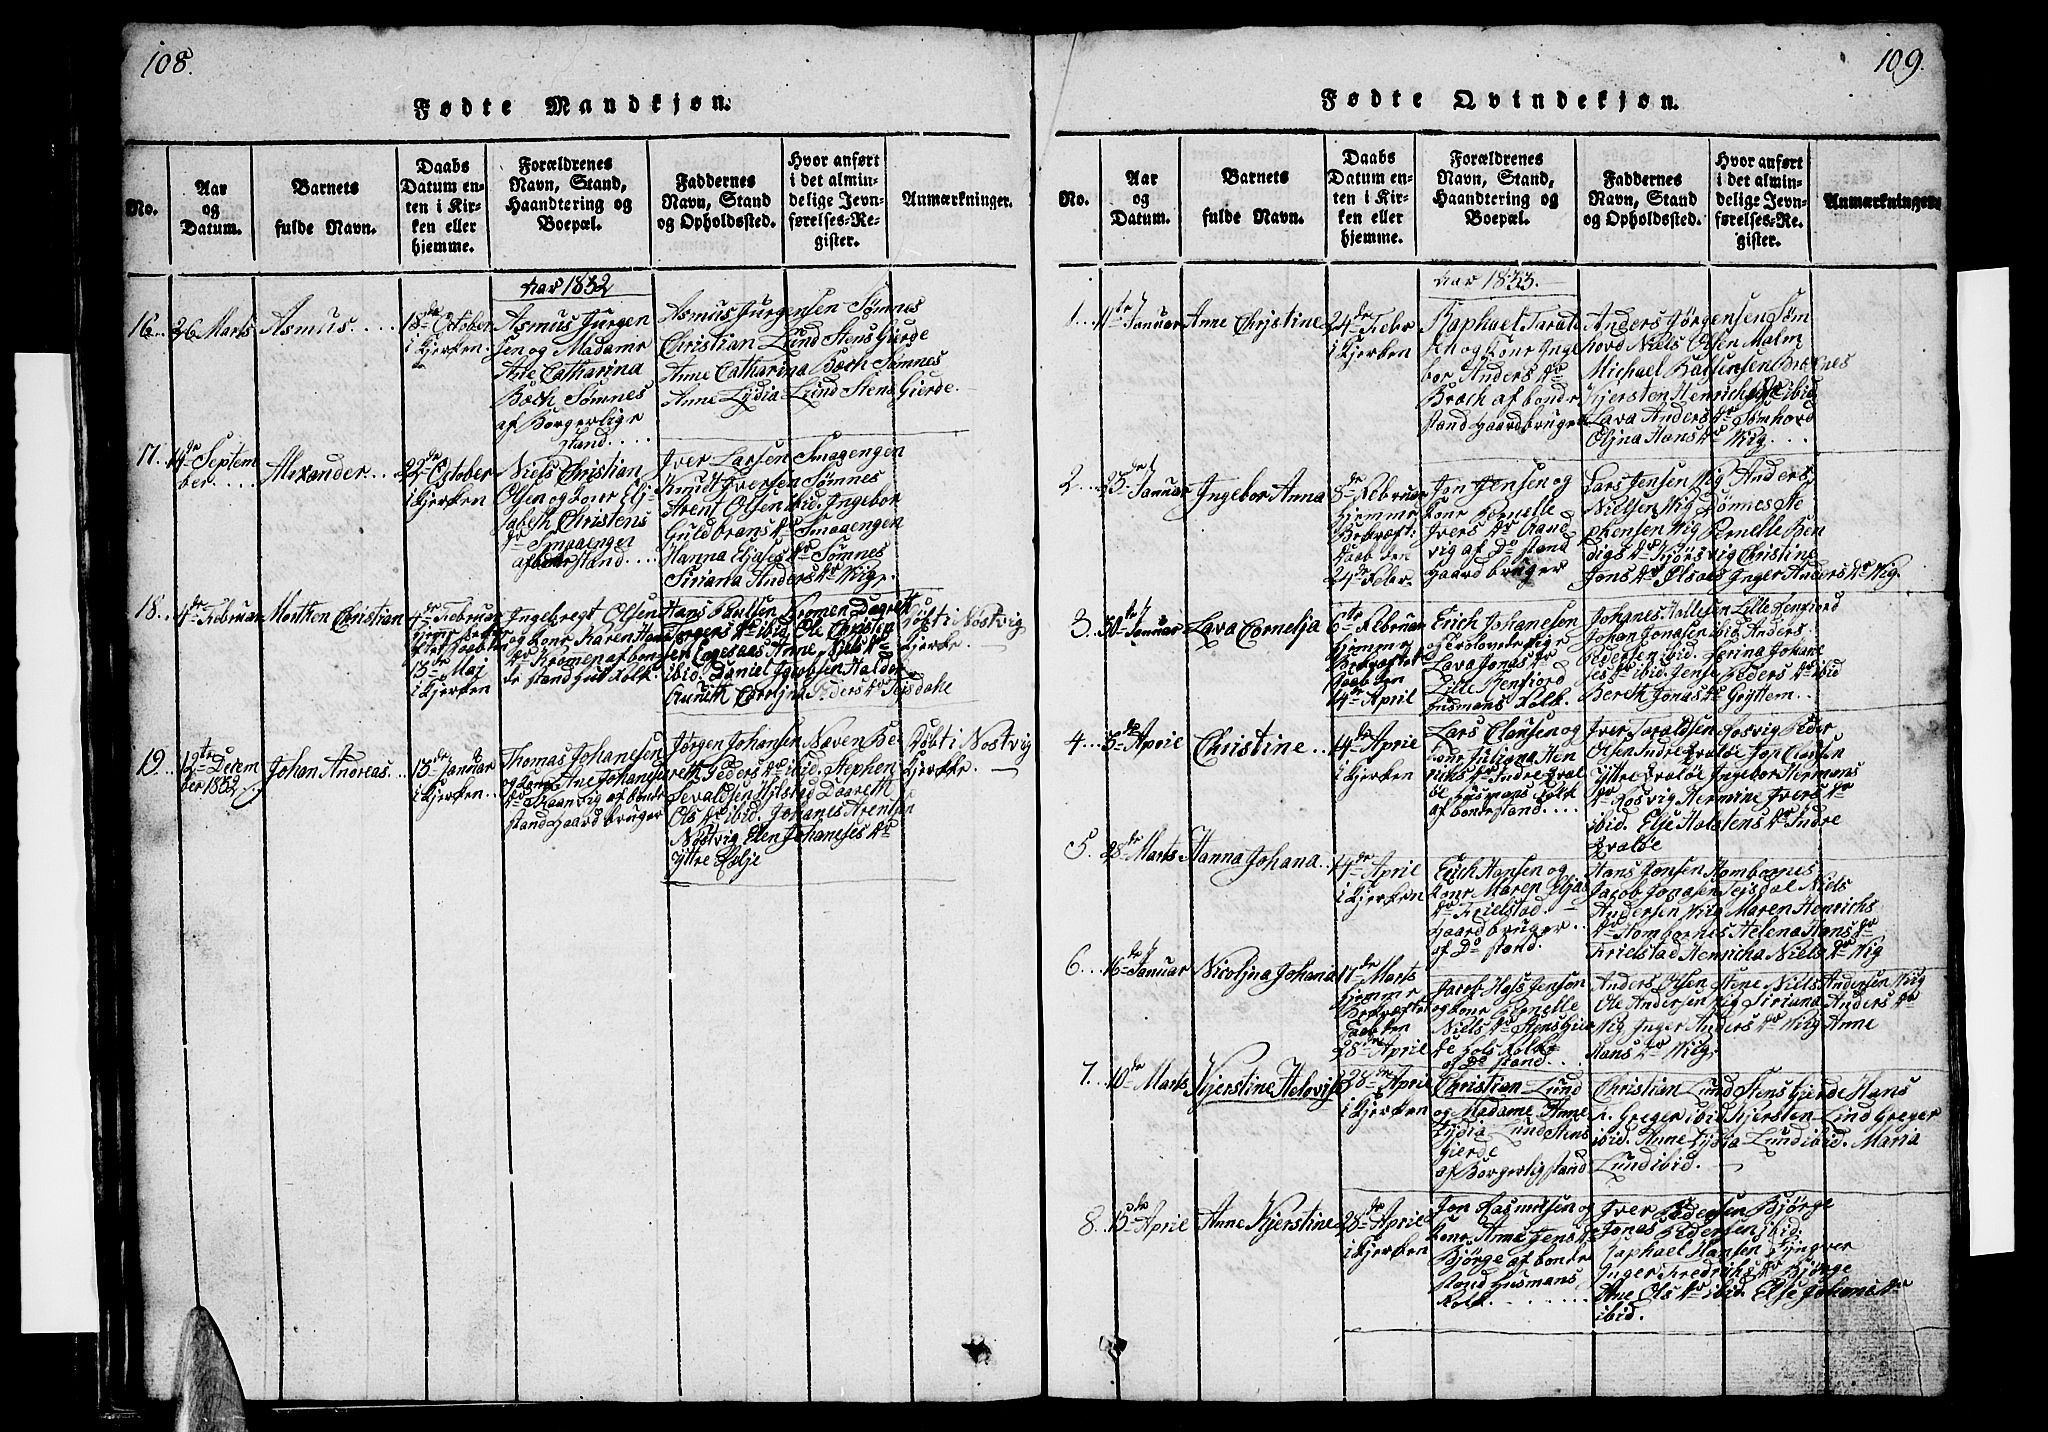 108.
Fødte Mandkjøn.
No.
Aar
og
Datum.
Barnets
fulde Navn.
Daabs
Datum en-
ten i Kir-
ken eller
hjemme.
Forældrenes
Navn, Stand,
Haandtering og
Boepæl.
Faddernes
Navn, Stand
og Opholdssted.
Hvor anført
i det almin-
delige Jevn-
førelses-Re-
gister.
Anmærkninger.
Aar 1832
16.. 26 Marts
Asmus
18de October
i Kjerken.
Asmus Jurgen
sen og Madame
Ane Catharina
Boch Sømnes
af Borgerlige
stand
Asmus Jurgensen Sømnes
Christian Lund Stens Gierde
Anne Catharina Boch Sømnes
Anne Lydia Lund Stens Gierde.
17. 14de Septem
ber
Alexander
22de October
i Kjerken
Niels Christian
Olsen og kone Eli-
sabeth Christens
dr Smaaengen
af bonde stand
Iver Larsen Smagengen
Knudt Iversen Sømnes
Arent Olsen ibid. Ingebor
Guldbrans dr Smaaengen
Hanna Eliases dr Sømnes
Siriana Anders dr Wig.
18. 4de Februar
Morthen Christian
4de Februar
13de Maj
i Kjerken
Ingebregt Olsen
og kone Karen
dr Kromen af bon
de stand
Hans Paulsen Kromen
ibid. Ole Christen
sen Anne Niels dr
ibid. Daniel Jacobsen
Peders dr Tejsdahl
Døbt i Nøstvig
Kjerke.
19. 12te Decem
ber 1832
Johan Andreas
13de Januar
i Kjerken
Thomas Johanesen
og kone Ane Johanes
dr Skaanvig af bonde
stand Gaardbruger
Jørgen Johansen Naven Be
reth Peders dr ibid. Stephen
Sevaldsen Hilstad
Ols dr ibid. Johanes Arentsen
Nøstvig Elen Johaneses dr
Yttre
Døbt i Nøstvig
Kjerke.
109.
Fødte Qvindekjøn.
No.
Aar
og
Datum.
Barnets
fulde Navn.
Daabs
Datum en-
ten i Kir-
ken eller
hjemme.
Forældrenes
Navn, Stand,
Haandtering og
Boepæl.
Faddernes
Navn, Stand
og Opholdssted.
Hvor anført
i det almin-
delige Jevn-
førelses-Re-
gister.
Anmærkninger.
Aar 1833.
1. 11te Januar
Anne Christine
24de Febr
i Kjerken
Raphael Tarald
sen og kone Inge
bor Anders dr
Brøch af bonde
stand Gaardbruger
Anders Jørgensen Søm
hord Niels Olsen Malm
Kjersten Henrichs dr ibid
Lava Anders dr Sømhord
Eljna Hans dr Wig
2. 23de Januar
Ingebor Anna
8de Februar
hjemme
Bekræft:
Daab den
24de Febr.
Jon Jensen og
kone Pernelle
Ivers dr Strand
vig af Do stand
Gaardbruger
Lars Jensen Wig Anders
Nielsen Wig Dønnes Ste
phensen Wig Pernelle Ben
digs dr Christine
Jons dr Inger Anders dr Wig.
3. 30te Januar
Lava Cornelja
6te Februar
hjemme
Bekræftet
Daab den
14de April
Erich Johanesen
og Trolovede Pige
Lava Jonas dr
Lille Tenfiord
Husmans Folk.
Johanes Hallesen Lille Tenfiord
Johan Jonasen ibid. Anders
Pedersen ibid. Johane
ses dr ibid. Peders dr ibid
Bereth Jonas dr Gryttem.
4. 3de Aprie
Christine
14de Aprie
i Kjerken
Lars Clausen og
kone Juliana Hen
richs dr Indre Qval
øe Husmans Folk
af bonde stand
Iver Taraldsen Rosvig Peder
Olsen Indre Qvaløe Jon Clausen
Yttre Qvaløe Ingebor Hermans
dr Rosvig Hermine Ivers dr
ibid. Else Holstens dr Indre
Qvaløe
5. 28de Marts
Hanna Johana
14de Aprie
i Kjerken
Erich Hansen og
kone Maren Eljas
dr Trielstad.
Gaardbruger
af Do stand.
Hans Jonsen Hombornes
Jacob Jonasen Tejsdal Niels
Andersen Wig Maren Henrichs
dr Hombornes Helena Hans dr
Trielstad Henricha Niels dr Wig
6. 16de Januar
Nicoljna Johana
17de Marts
hjemme
Bekræftet
Daab den
28de April
Jacob Hass Jenson
og kone Pernelle
Niels dr Stens Gier
de Folk
af Do stand
Anders Olsen Stene Niels Andersen Wig
Ole Andersen Wig Siriana Anders dr
Wig Inger Anders dr Wig Anne
Hans dr Wig.
7. 10de Marts
Kjerstine Helovise
28de Aprie
i Kjerken
Christian Lund
og Madame Anne
Lydia Lund Stens
gierde
af Borgerlig stand
Christian Lund Stensgjerde Hans
A. Greger ibid Kjersten Lind Greger
ibid. Anne Lydia Lund ibid. Maria
Lund ibid.
8. 13de Aprie
Anne Kjerstine
28de Aprie
i Kjerken
Jon Rasmussen og
kone Anne Jens dr
Bjørge af bonde
stand Husmans
Folk.
Iver Pedersen Bjørge
Jonas Pedersen ibid.
Raphael Hansen
Inger Fredrichs dr Bjørge
Ane Ols dr ibid. Else Johanes dr
ibid.